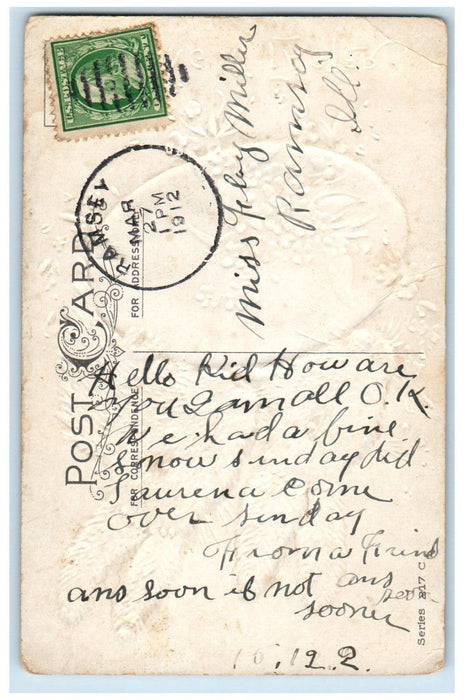 U.S. POSTAGE
RAMSEY
MAR
27
1 PM
1912
POST CARD
FOR ADDRESS
FOR CORRESPONDENCE
Miss Felcy Miller
Ramsey
Ill
Hello Kid How are
you I am all O.K.
We had a fine
snow sunday did
Laurena Come
over sunday
From a Frind
ans soon if not ans
sooner
Series 217 C